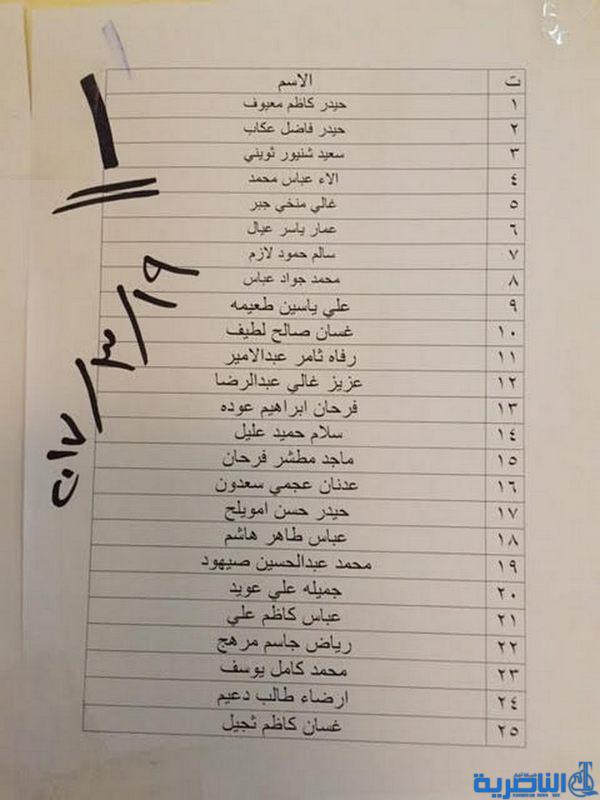 ت الاسم
١ حيدر كاظم معيوف
٢ حيدر فاضل عكاب
٣ سعيد شنيور ثويني
٤ الاء عباس محمد
٥ غالي منخي جبر
٦ عمار ياسر عيال
٧ سالم حمود لازم
٨ محمد جواد عباس
٩ علي ياسين طعيمه
١٠ غسان صالح لطيف
١١ رفاه ثامر عبدالامير
١٢ عزيز غالي عبدالرضا
١٣ فرحان ابراهيم عوده
١٤ سلام حميد عليل
١٥ ماجد مطشر فرحان
١٦ عدنان عجمي سعدون
١٧ حيدر حسن امويلح
١٨ عباس طاهر هاشم
١٩ محمد عبدالحسين صيهود
٢٠ جميله علي عويد
٢١ عباس كاظم علي
٢٢ رياض جاسم مرهج
٢٣ محمد كامل يوسف
٢٤ ارضاء طالب دعيم
٢٥ غسان كاظم ثجيل
١
الناصرية